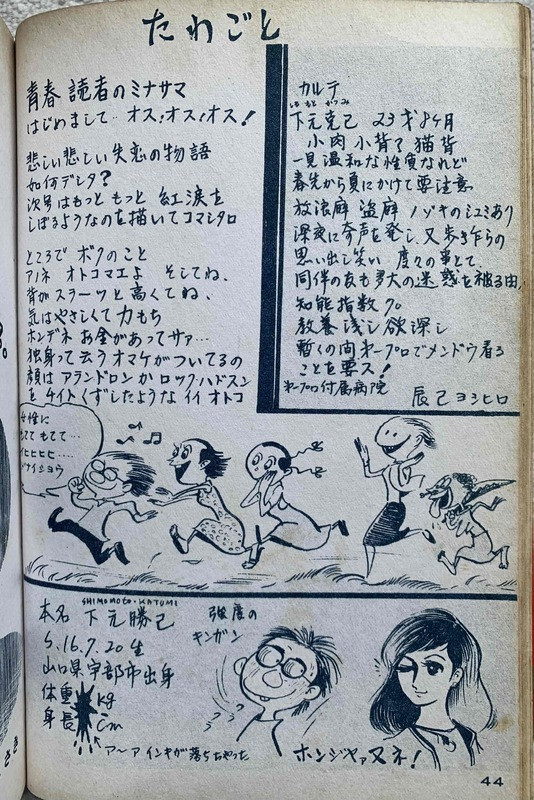 たわごと
青春 読者のミナサマ
はじめまして‥オス!オス!オス!
悲しい悲しい失恋の物語
如何デシタ?
次号はもっともっと 紅涙を
しぼるようなのを描いてコマシタロ
ところで ボクのこと
アノネ オトコマエよ そしてね、
背がスラーッと高くてね、
気はやさしくて力もち
ホンデネ お金があってサァ…
独身って云うオマケがついてるの
顔は アランドロンかロックハドスン
を チイトくずしたような イイ オトコ
カルテ
しももと かつみ
下元克己 23才8ヶ月
小肉 小背 猫背
一見温和な性質なれど
春先から夏にかけて要注意
放浪癖 盗癖 ノゾキのシュミあり
深夜に奇声を発し、又歩き乍らの
思い出し笑い 度々の事とて
同伴の友も多大の迷惑を被る由
知能指数 70
教養浅し 欲深し
暫くの間 オープロでメンドウ看る
ことを要ス!
オープロ付属病院
辰己ヨシヒロ
女性に
もてて もてて…
イヒヒヒ…
ナイショウ
本名 下元勝己
SHIMOMOTO・KATUMI
S.16.7.20生
山口県宇部市出身
体重 kg
身長 cm
ア〜ア インキが落ちちゃった
強度の
キンガン
ホンジャァ又ネ!
44